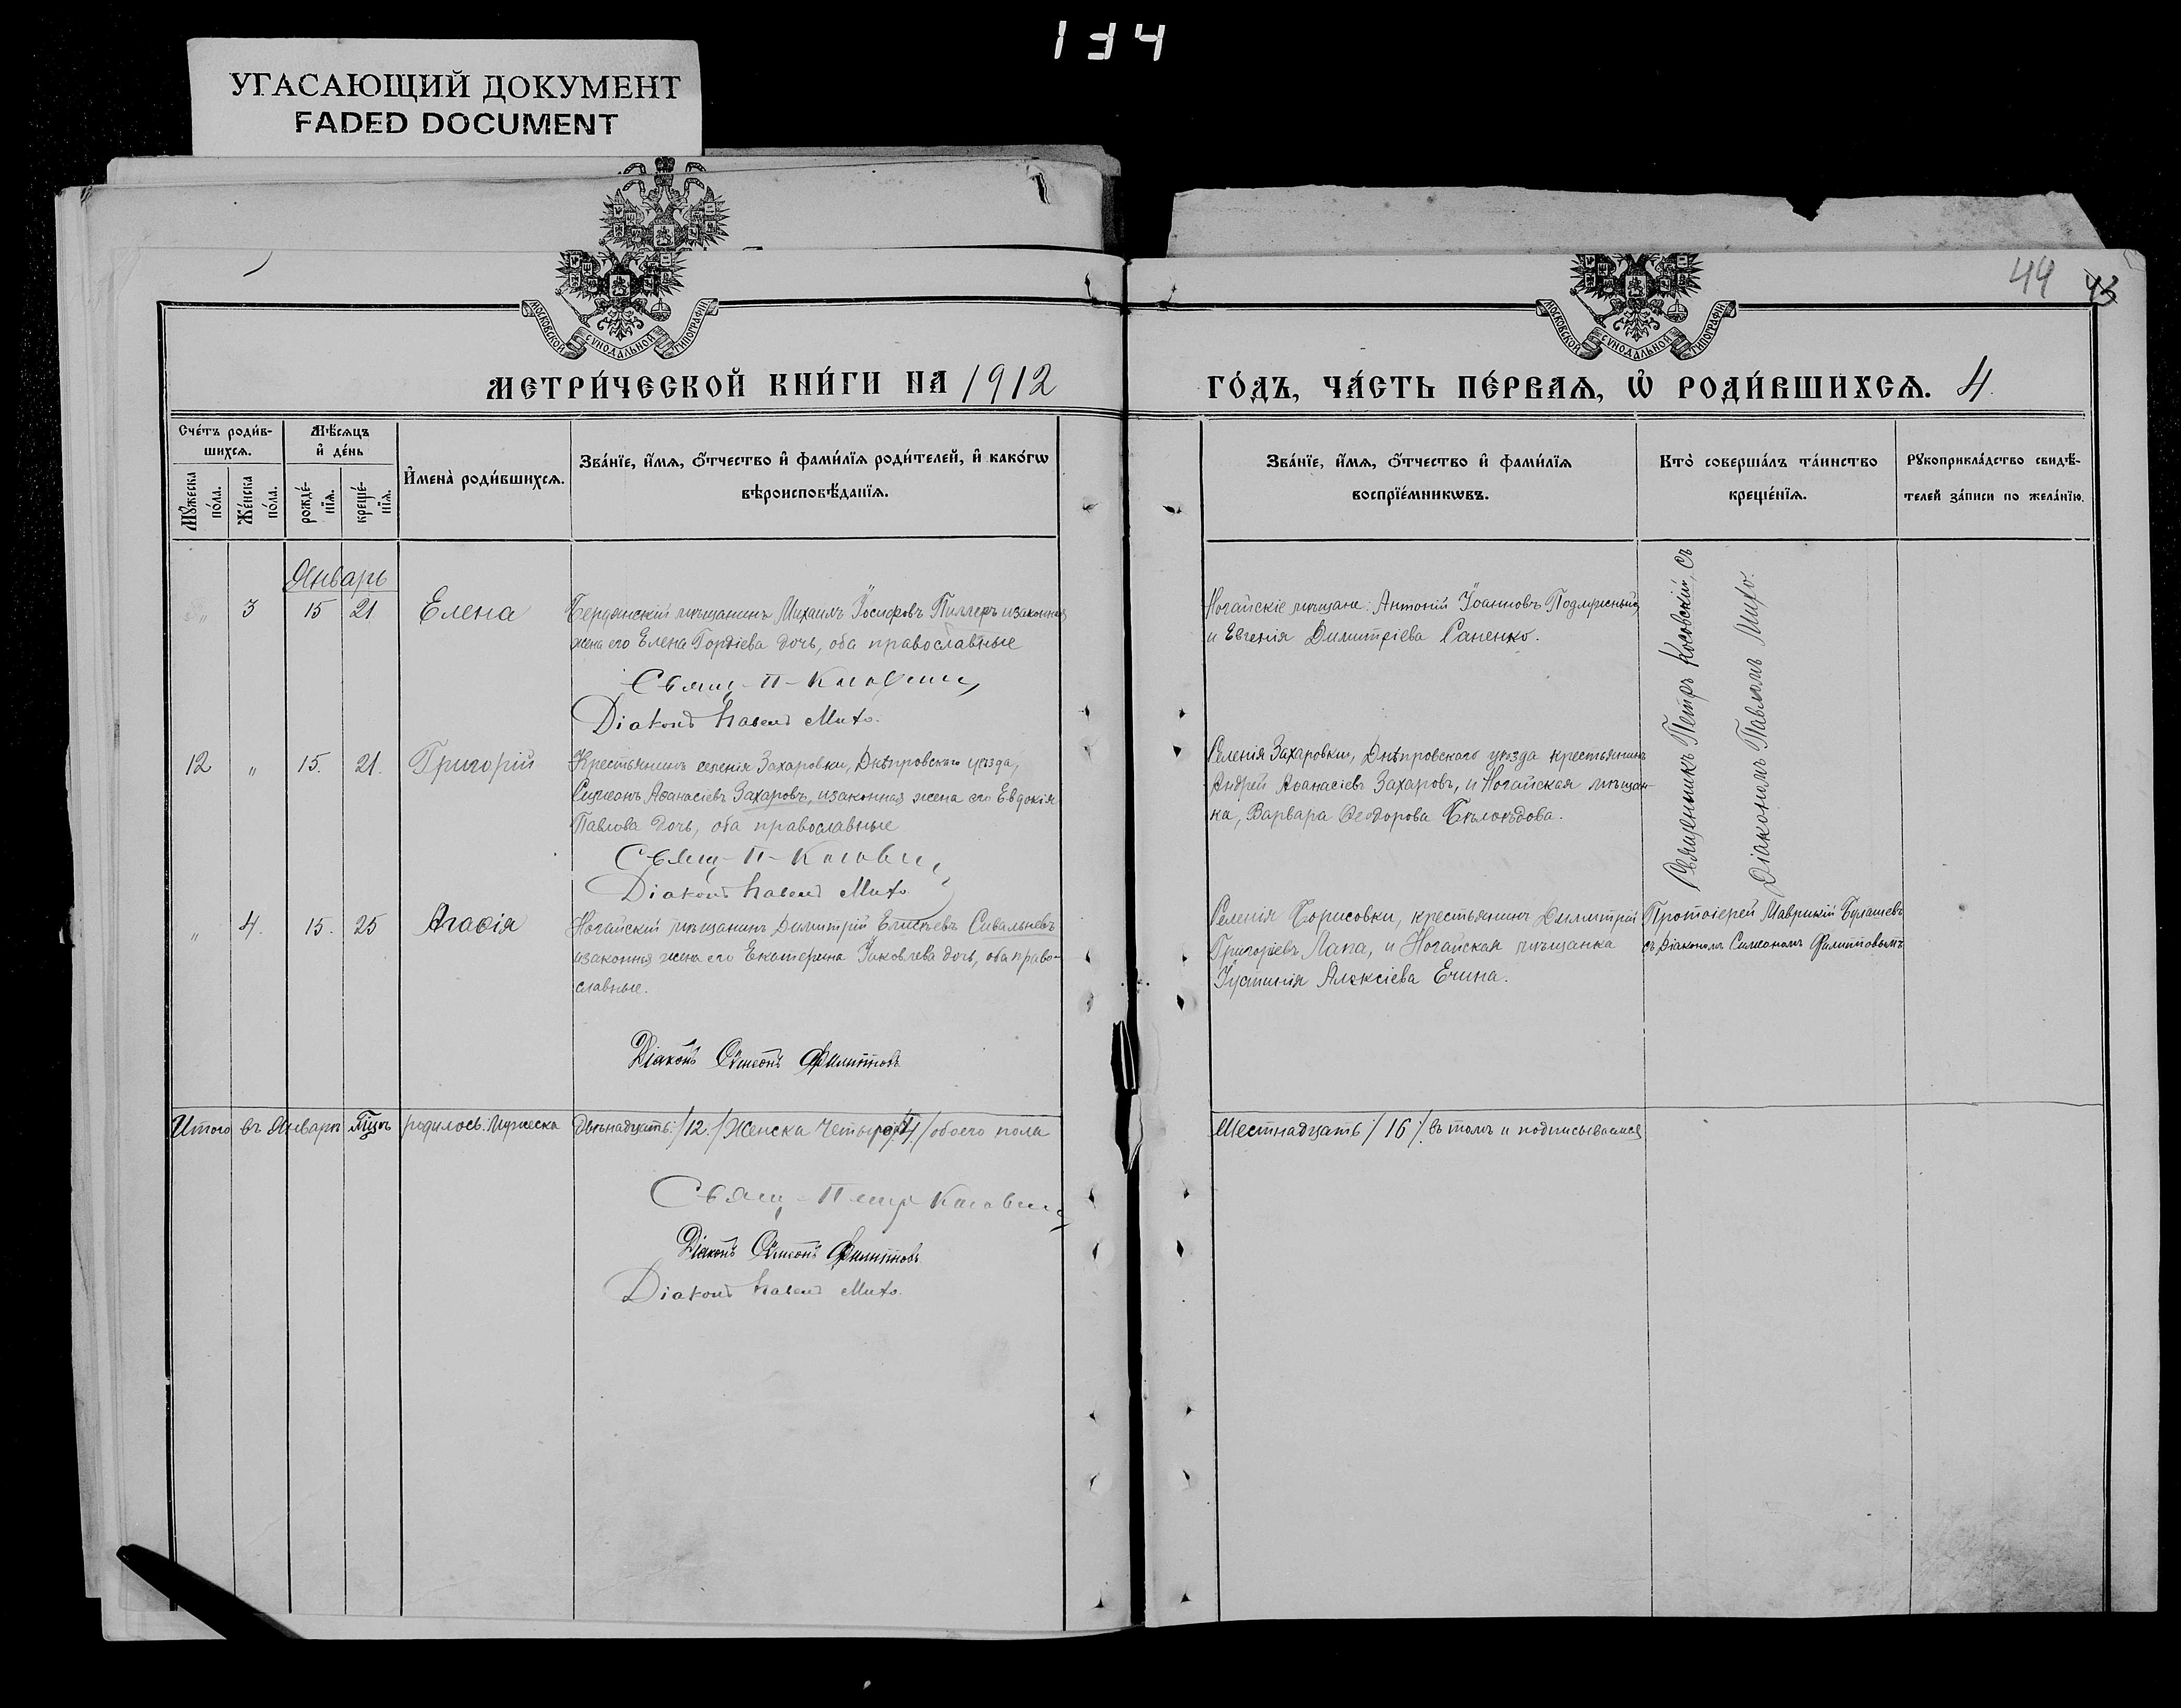 134
УГАСАЮЩИЙ ДОКУМЕНТ
FADED DOCUMENT
44 43
МОСКОВСКОЙ СУНОДАЛЬНОЙ ТИПОГРАФІИ
МОСКОВСКОЙ СУНОДАЛЬНОЙ ТИПОГРАФІИ
МЕТРИ́ЧЕСКОЙ КНИ́ГИ НА 1912
ГО́ДЪ, ЧА́СТЬ ПЕ́РВАѦ, Ѡ҆ РОДИ́ВШИХСѦ. 4.
Сче́тъ роди́в-
шихсѧ.
Мꙋ́жеска
по́ла.
Же́нска
по́ла.
Мѣ́сѧцъ
и҆ де́нь
рожде́-
нїѧ.
креще́-
нїѧ.
И҆мена̀ роди́вшихсѧ.
Зва́нїе, и҆́мѧ, ѻ҆́тчество и҆ фами́лїѧ роди́телей, и҆ како́гѡ
вѣроисповѣ́данїѧ.
Зва́нїе, и҆́мѧ, ѻ҆́тчество и҆ фами́лїѧ
воспрїе́мникѡвъ.
Кто̀ соверша́лъ та́инство
креще́нїѧ.
Рꙋкоприкла́дство свидѣ́-
телей за́писи по жела́нїю.
Январь
„ 3 15 21. Елена
Бердянскій мѣщанинъ Михаилъ Іосифовъ Пиллеръ и законная
жена его Елена Гордіева дочь, оба православные
Свящ. П. Косовскій
Діаконъ Павелъ Михо.
Ногайскіе мѣщане: Антоній Іоанновъ
и Евгенія Димитріева Саненко.
Священникъ Петръ Косовскій, съ
Діакономъ Павломъ Михо.
12 „ 15. 21. Григорій
Крестьянинъ селенія Захаровки, Днѣпровскаго уѣзда,
Симеонъ Аѳанасіевъ Захаровъ, и законная жена его Евдокія
Павлова дочь, оба православные
Свящ. П. Косовскій
Діаконъ Павелъ Михо
Селенія Захаровки, Днѣпровскаго уѣзда крестьянинъ
Андрей Аѳанасіевъ Захаровъ, и Ногайская мѣщан-
ка, Варвара Ѳеодорова Бѣлоѣдова.
„ 4. 15. 25 Агаѳія
Ногайскій мѣщанинъ Димитрій Елисѣевъ Сивальневъ
и законная жена его Екатерина Іаковлева дочь, оба право-
славные.
Діаконъ Сѵмеонъ Филипповъ
Селенія Борисовки, крестьянинъ Димитрій
Григоріевъ Лапа, и Ногайская мѣщанка
Іустинія Алексіева Ечина.
Протоіерей Маврикій
съ Діакономъ Симеономъ Филипповымъ
Итого въ Январѣ м-цѣ родилось: Мужеска Двѣнадцать /12./ Женска Четыре /4/ обоего пола
Шестнадцать /16/. въ томъ и подписываемся
Свящ. Петръ Косовскій
Діаконъ Сѵмеонъ Филипповъ
Діаконъ Павелъ Михо.